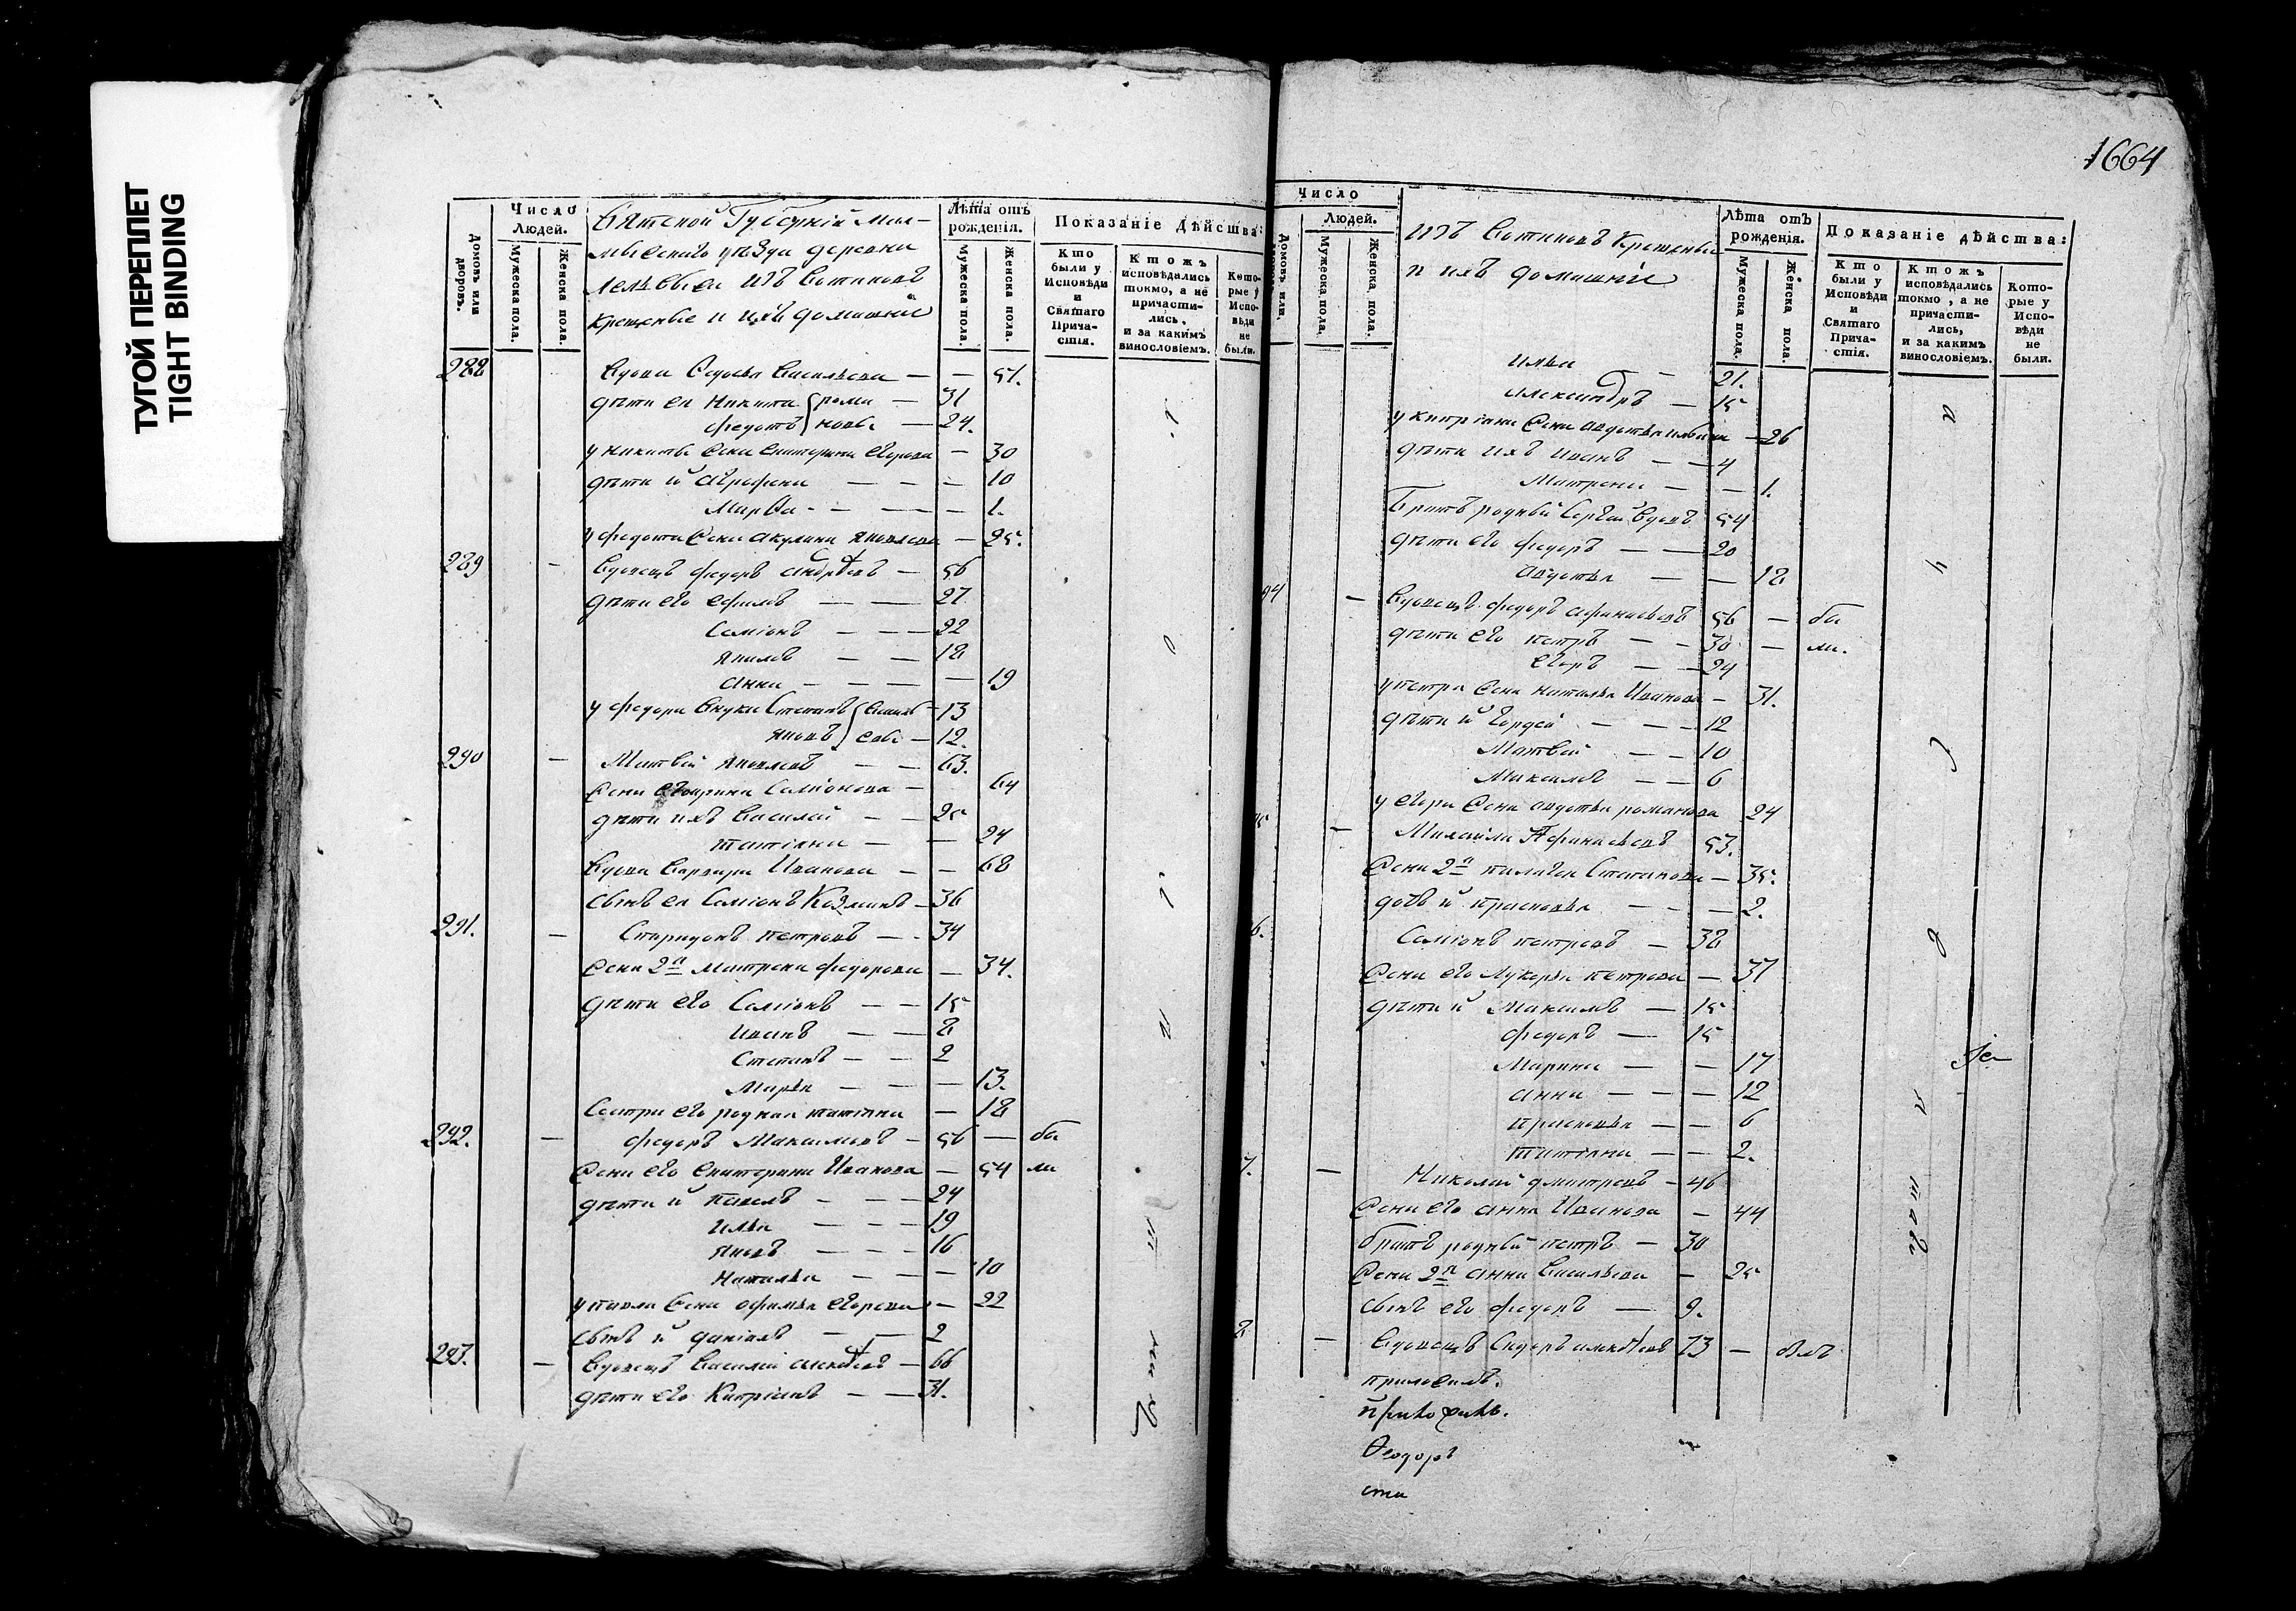 ТУГОЙ ПЕРЕПЛЕТ
TIGHT BINDING
Число Людей.
Домовъ или дворовъ.
Мужеска пола.
Женска пола.
Вятской Губерній Мал-
мыжскаго уѣзда деревни
изъ Вотяковъ
крещеные и ихъ домашніе
Лѣта отъ рожденія.
Мужеска пола.
Женска пола.
Показаніе Дѣйства:
Кто были у Исповѣди и Святаго Прича-стія.
Ктожъ исповѣдались токмо, а не причасти-лись, и за какимъ винословіемъ.
Кото-рые у Испо-вѣди не были.
288 Вдова Васильева — — 51.
дѣти ея Никита рома — 31
Федотъ новы — 24.
у никиты жена екатерина егорова — 30
дѣти й Агрофена — — — 10
Марѳа — — — 1.
у федота жена акулина яковлева — 25.
289 — Вдовецъ федоръ андреевъ — 56
дѣти его ефимъ — — 27
Семіонъ — — 22
якимъ — — 18
анна — — — 19
у федора внуки Степанъ Василь 13
яковъ евы — 12.
290 — Матвей яковлевъ — — 63.
жена его ирина Семіонова — 64
дѣти ихъ василей — — 25
татіяна — — 24
Вдова варвара Иванова — — 68
сынъ ея Семіонъ Козминъ — 36
291. — Спиридонъ петровъ — 34
жена 2я матрена федорова — 34.
дѣти его Семіонъ — — 15
иванъ — — 8
Степанъ — — 2
Марья — — — 13.
Сестра его родная татіяна — 18
292. — федоръ Максимовъ — 56 — бы
жена его екатерина Иванова — 54 ли
дѣти й павелъ — — 24
илья — — — 19
яковъ — — — 16
наталья — — — 10
у павла жена офимья егорова — 22
сынъ й даніилъ — — 2
293. — Вдовецъ василей алексѣевъ — 66
дѣти его Кипріянъ — — 31.
1664
Число
Людей.
Домовъ или
Мужеска пола.
Женска пола.
изъ Вотяковъ крещеные
и ихъ домашніе
Лѣта отъ рожденія.
Мужеска пола.
Женска пола.
Показаніе дѣйства:
Кто были у Исповѣди и Святаго Прича-стія.
Ктожъ исповѣдались токмо, а не причасти-лись, и за какимъ винословіемъ.
Кото-рые у Испо-вѣди не были.
илья — 21.
александръ — 15
у кипріяна жена авдотья ильина — 26
дѣти ихъ иванъ — — 4
Матрена — — 1.
братъ родный Сергѣй вдовъ 54
дѣти его федоръ — — 20
авдотья — — 18
94 — Вдовецъ федоръ афанасьевъ 56 — бы
дѣти его петръ — — 30 — ли.
егоръ — — 24
у петра жена наталья Иванова — 31.
дѣти й гордей — — 12
Матвей — — 10
Максимъ — — 6
у егора жена авдотья романова 24
— Михайла Афанасьевъ 53.
жена 2я пелагея Степанова — 35.
дочь й прасковья — — 2.
6. Семіонъ петровъ — 38
жена его лукерья петрова — 37
дѣти й Максимъ — 15
федоръ — 15
Марина — — 17
анна — — — 12
прасковья — — 6
татіяна — — 2.
7. — Николай дмитревъ — 46
жена его анна Иванова — 44
братъ родный петръ — 30
жена 2я анна Васильева — 25
сынъ его федоръ — 9.
8 — Вдовецъ Сидоръ алексѣевъ 73 — былъ
Ѳеодоръ